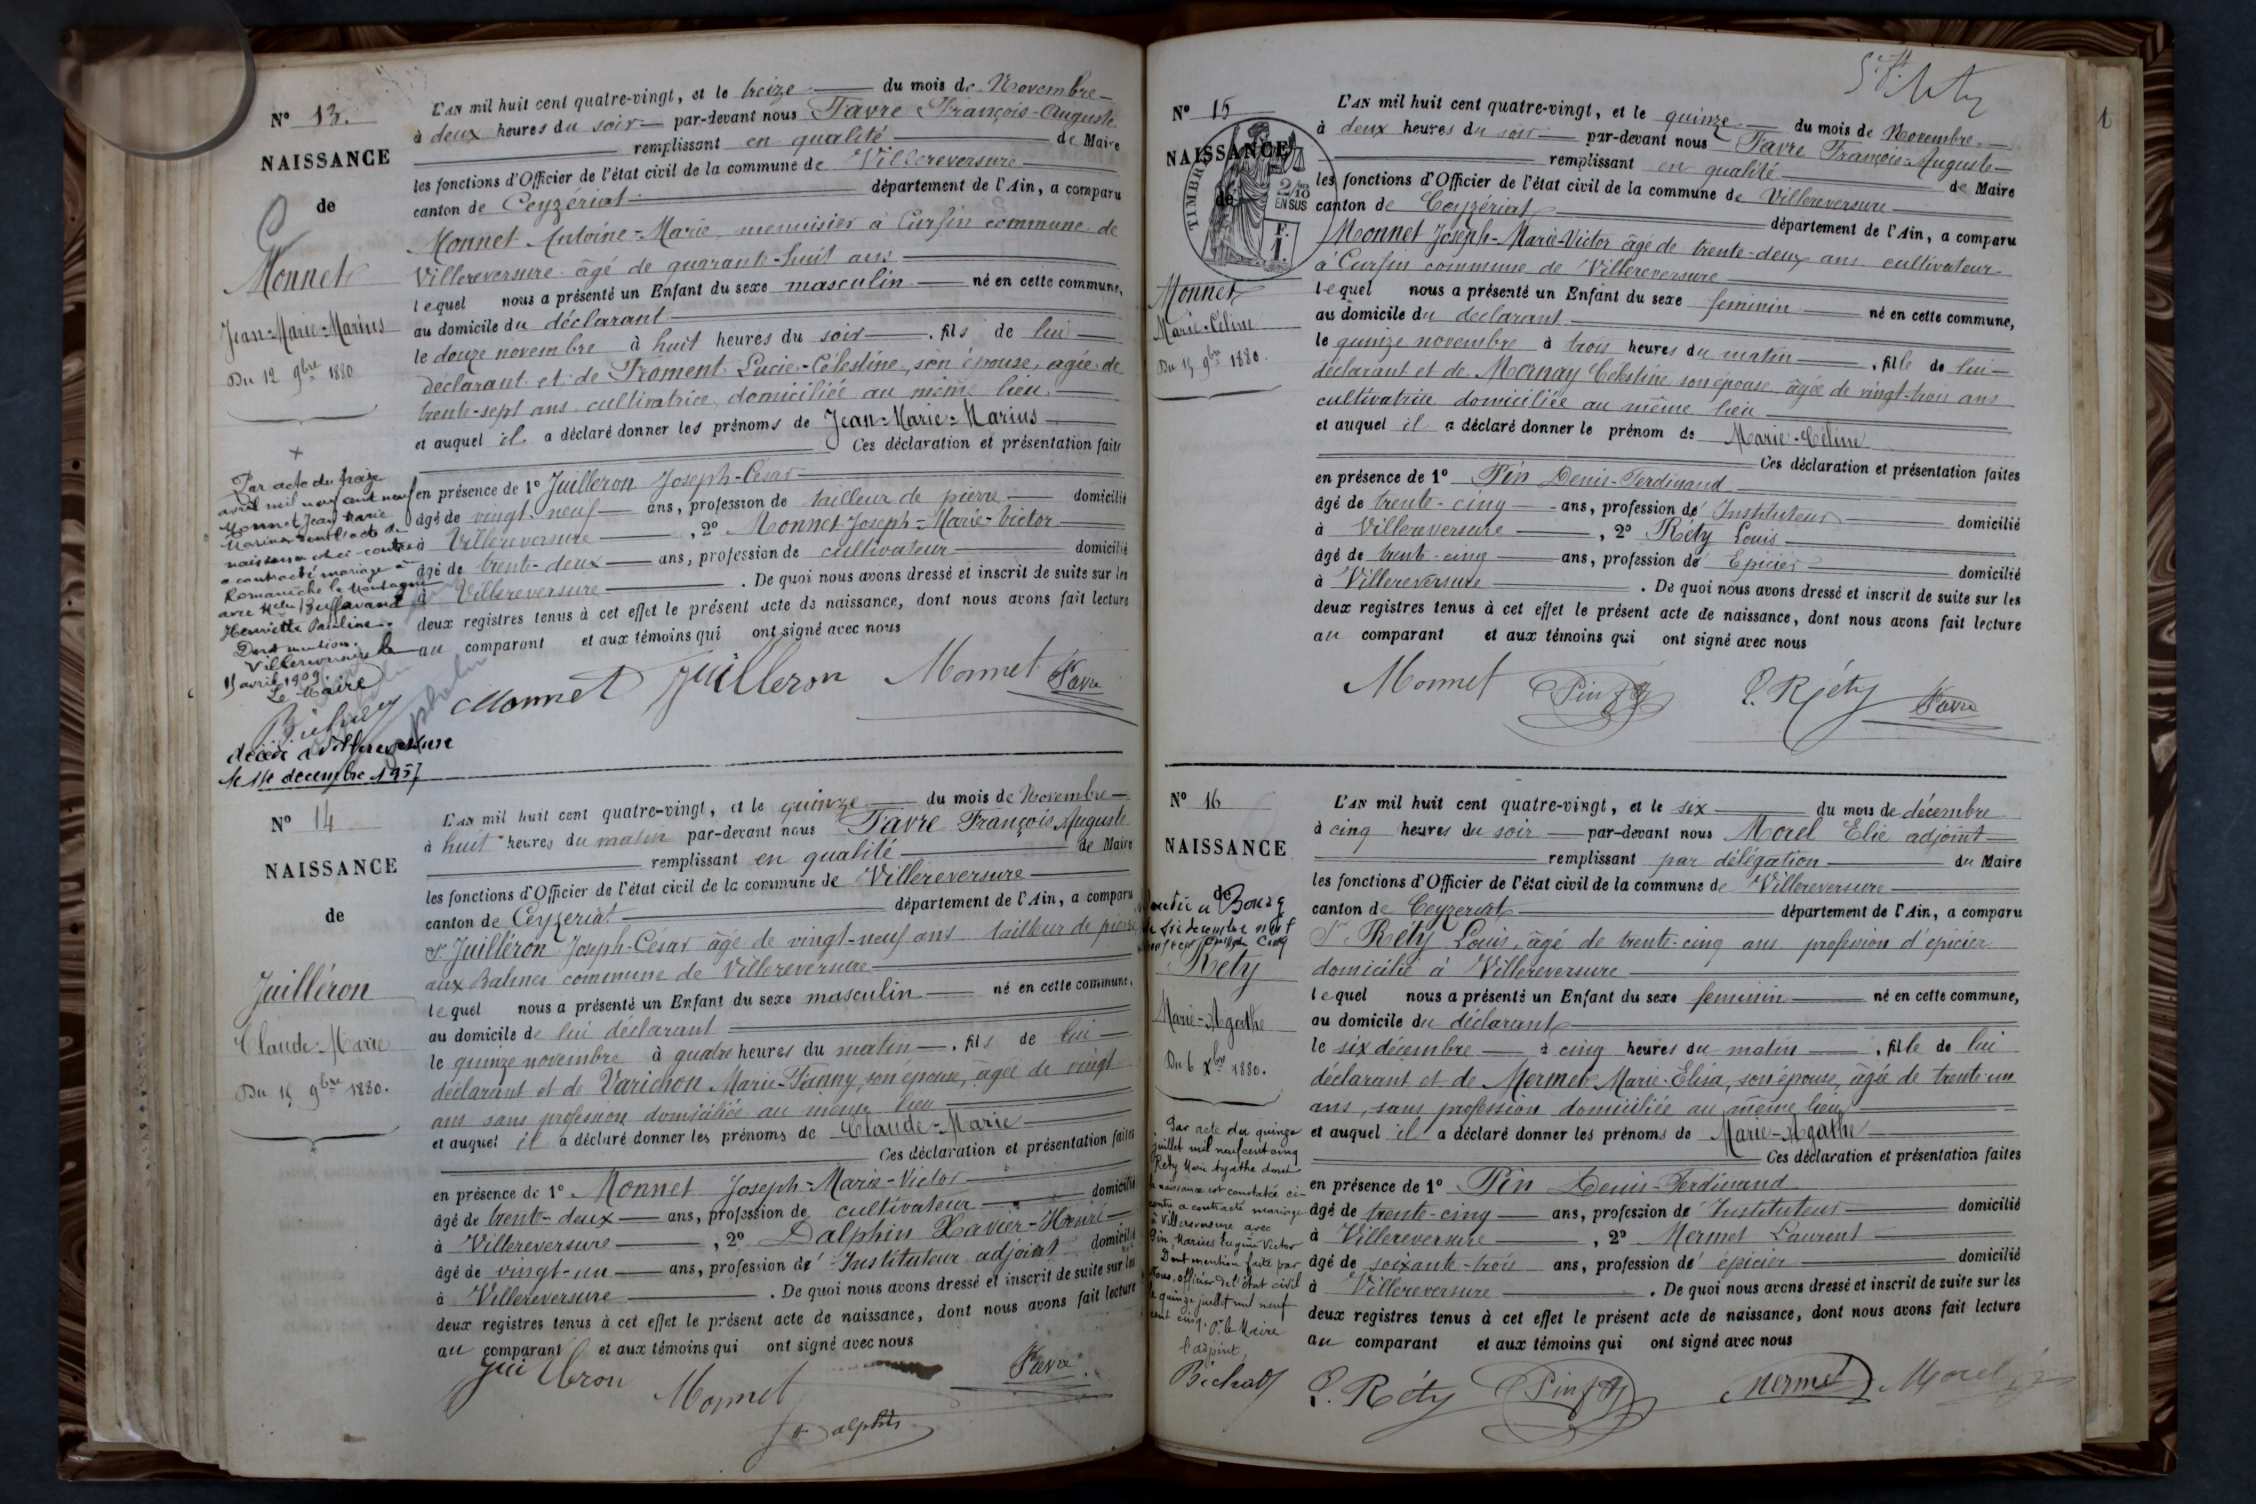 Nº 13.
NAISSANCE
de
Monnet
Jean-Marie-Marius
Du 12 9bre 1880
L'AN mil huit cent quatre-vingt, et le treize du mois de Novembre
à deux heures du soir par-devant nous Favre François-Auguste
remplissant en qualité de Maire
les fonctions d'Officier de l'état civil de la commune de Villereversure
canton de Ceyzériat département de l'Ain, a comparu
Monnet Antoine-Marie menuisier à Cursin commune de
Villereversure âgé de quarante-huit ans
lequel nous a présenté un Enfant du sexe masculin né en cette commune,
au domicile du déclarant
le douze novembre à huit heures du soir, fils de lui
déclarant et de Froment Lucie-Célestine, son épouse, agée de
trente-sept ans cultivatrice, domiciliée au même lieu
et auquel il a déclaré donner les prénoms de Jean-Marie-Marius
Ces déclaration et présentation faite
en présence de 1º Juilleron Joseph-César
âgé de vingt-neuf ans, profession de tailleur de pierre domicilié
à Villereversure, 2º Monnet Joseph-Marie-Victor
âgé de trente-deux ans, profession de cultivateur domicilié
à Villereversure. De quoi nous avons dressé et inscrit de suite sur les
deux registres tenus à cet effet le présent acte de naissance, dont nous avons fait lecture
au comparant et aux témoins qui ont signé avec nous
Monnet Juilleron Monnet Favre
Par acte du treize
avril mil neuf cent neuf
Monnet Jean Marie
Marius dont l'acte de
naissance est ci-contre
a contracté mariage à
Romanèche la Montagne
avec Melle Buffavand
Henriette Pauline.
Dont mention.
Villereversure le
15 avril 1909.
Le Maire
décédé à Villereversure
le 14 décembre 1957
Nº 14
NAISSANCE
de
Juilléron
Claude-Marie
Du 15 9bre 1880.
L'AN mil huit cent quatre-vingt, et le quinze du mois de Novembre
à huit heures du matin par-devant nous Favre François Auguste
remplissant en qualité de Maire
les fonctions d'Officier de l'état civil de la commune de Villereversure
canton de Ceyzeriat département de l'Ain, a comparu
Sr Juilléron Joseph-César âgé de vingt-neuf ans tailleur de pierre
aux Balmes commune de Villereversure
lequel nous a présenté un Enfant du sexe masculin né en cette commune,
au domicile de lui déclarant
le quinze novembre à quatre heures du matin, fils de lui
déclarant et de Varichon Marie-Fanny, son épouse, âgée de vingt
ans sans profession domiciliée au même lieu
et auquel il a déclaré donner les prénoms de Claude-Marie
Ces déclaration et présentation faites
en présence de 1º Monnet Joseph-Marie-Victor
âgé de trente-deux ans, profession de cultivateur domicilié
à Villereversure, 2º Dalphin Xavier-Henri
âgé de vingt-un ans, profession de Instituteur adjoint domicilié
à Villereversure. De quoi nous avons dressé et inscrit de suite sur les
deux registres tenus à cet effet le présent acte de naissance, dont nous avons fait lecture
au comparant et aux témoins qui ont signé avec nous
Juilleron Monnet Favre
Dalphin
1
Nº 15
NAISSANCE
de
TIMBRE
2/10
EN SUS
F.
1.
Monnet
Marie-Céline
Du 15 9bre 1880.
L'AN mil huit cent quatre-vingt, et le quinze du mois de Novembre
à deux heures du soir par-devant nous Favre François-Auguste
remplissant en qualité de Maire
les fonctions d'Officier de l'état civil de la commune de Villereversure
canton de Ceyzériat département de l'Ain, a comparu
Monnet Joseph-Marie-Victor âgé de trente-deux ans cultivateur
à Cursin commune de Villereversure
lequel nous a présenté un Enfant du sexe feminin né en cette commune,
au domicile du déclarant
le quinze novembre à trois heures du matin, fille de lui
déclarant et de Mornay Célestine son épouse âgée de vingt-trois ans
cultivatrice domiciliée au même lieu
et auquel il a déclaré donner le prénom de Marie-Céline
Ces déclaration et présentation faites
en présence de 1º Pin Denis-Ferdinand
âgé de trente-cinq ans, profession de Instituteur domicilié
à Villereversure, 2º Réty Louis
âgé de trente-cinq ans, profession de Epicier domicilié
à Villereversure. De quoi nous avons dressé et inscrit de suite sur les
deux registres tenus à cet effet le présent acte de naissance, dont nous avons fait lecture
au comparant et aux témoins qui ont signé avec nous
Monnet Pin L. Réty Favre
Nº 16
NAISSANCE
de
Réty
Marie-Agathe
Du 6 Xbre 1880.
L'AN mil huit cent quatre-vingt, et le six du mois de décembre
à cinq heures du soir par-devant nous Morel Elie adjoint
remplissant par délégation du Maire
les fonctions d'Officier de l'état civil de la commune de Villereversure
canton de Ceyzeriat département de l'Ain, a comparu
Sr Réty Louis, âgé de trente-cinq ans profession d'épicier
domicilié à Villereversure
lequel nous a présenté un Enfant du sexe feminin né en cette commune,
au domicile du déclarant
le six décembre à cinq heures du matin, fille de lui
déclarant et de Mermet Marie-Elisa, son épouse, âgée de trente-un
ans, sans profession domiciliée au même lieu
et auquel il a déclaré donner les prénoms de Marie-Agathe
Ces déclaration et présentation faites
en présence de 1º Pin Denis-Ferdinand
âgé de trente-cinq ans, profession de Instituteur domicilié
à Villereversure, 2º Mermet Laurent
âgé de soixante-trois ans, profession de épicier domicilié
à Villereversure. De quoi nous avons dressé et inscrit de suite sur les
deux registres tenus à cet effet le présent acte de naissance, dont nous avons fait lecture
au comparant et aux témoins qui ont signé avec nous
L. Réty Pin Mermet Morel
Par acte du quinze
juillet mil neuf cent cinq
Réty Marie Agathe dont
la naissance est constatée ci-
contre a contracté mariage
à Villereversure avec
Pin Marius Eugène Victor
Dont mention faite par
Nous, officier de l'état civil
le quinze juillet mil neuf
cent cinq. Pr le Maire
l'adjoint,